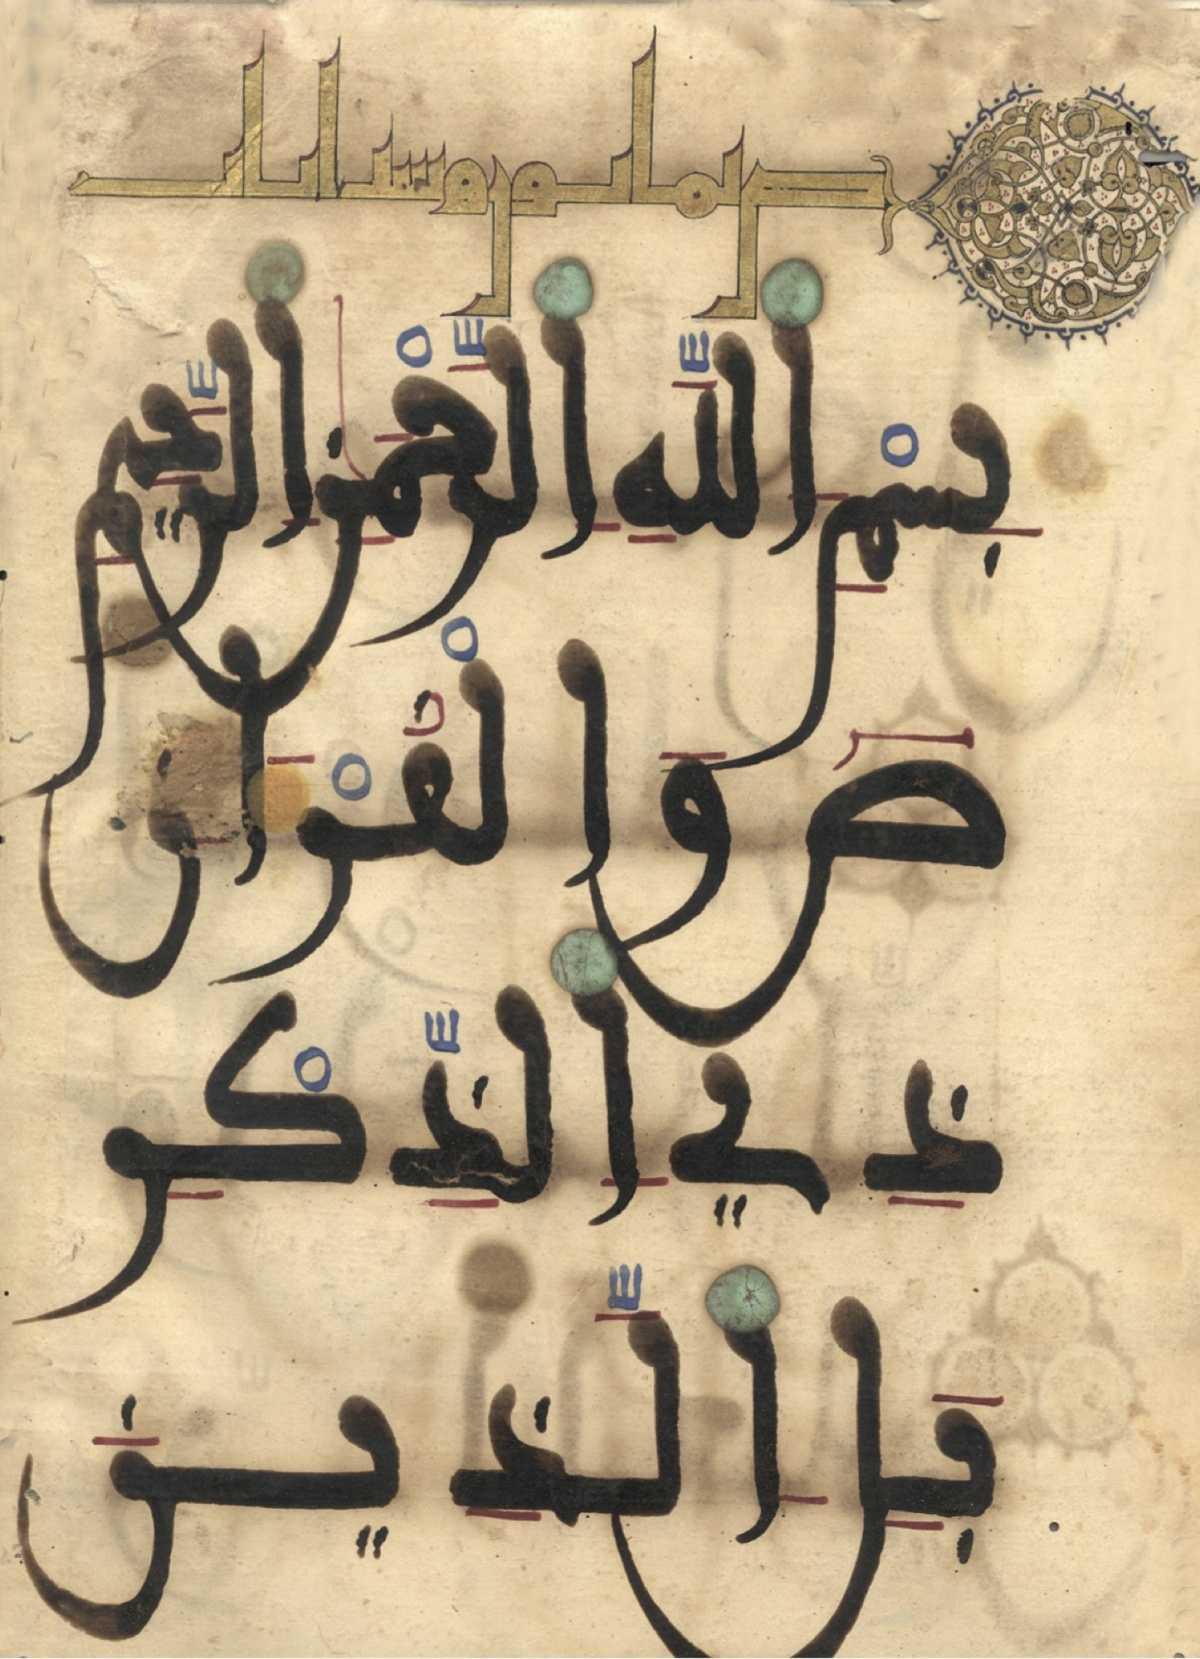 ص ثمانون وست ايات
بِسْمِ اِللَّهِ اِلرَّحْمَٰنِ اِلرَّحِيمِ
صَ وَالْقُرْءَانِ
ذِي اِلذِّكْرِ
بَلِ اِلذِينَ